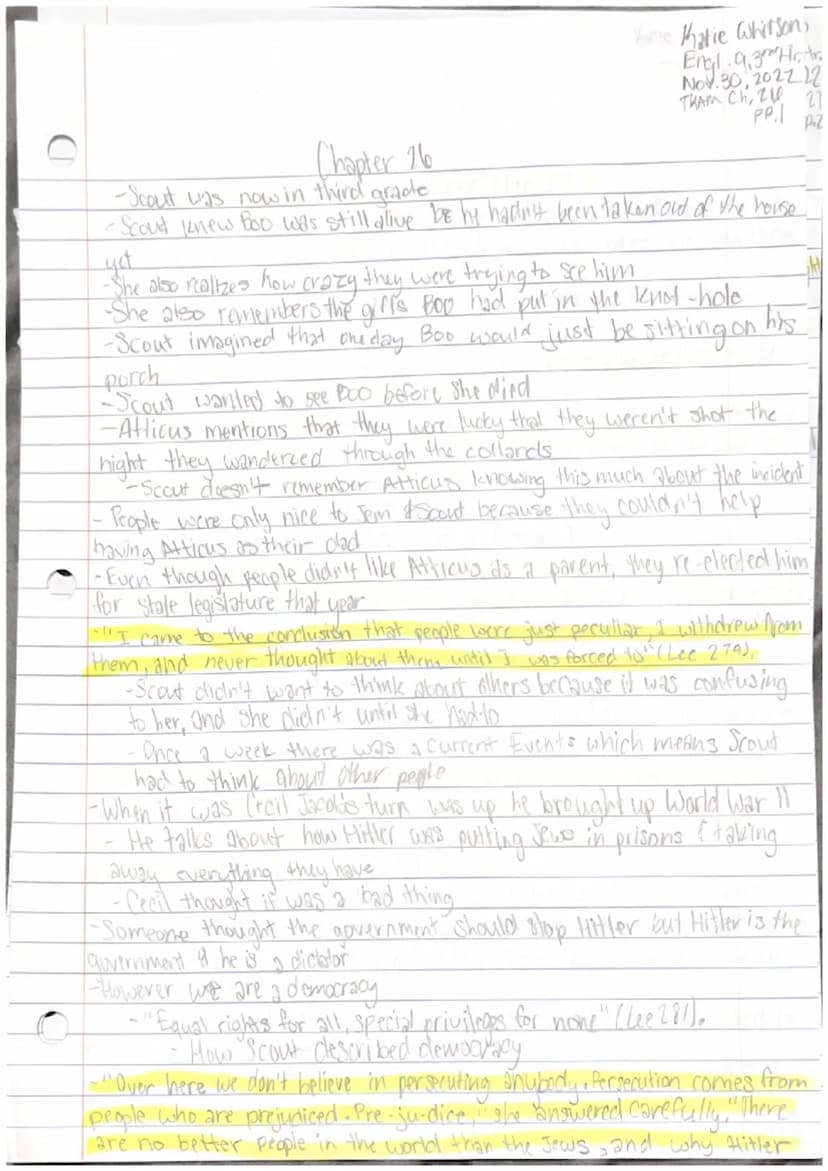 Katie Whitson,
Engl. 9, 3rd Hr,
Nov. 30, 2022
TKAM Ch, 26
PP. 1
Chapter 26
-Scout was now in third grade
-Scout knew Boo was still alive bc hy hadn't been taken out of the house
yet
-She also realizes how crazy they were trying to see him
-She also remembers the gifts Boo had put in the knot-hole
-Scout imagined that one day Boo would just be sitting on his
porch
-Scout wanted to see Boo before she died
-Atticus mentions that they were lucky that they weren't shot the
night they wandered through the collards
-Scout doesn't remember Atticus knowing this much about the incident
- People were only nice to Jem & Scout because they couldn't help
having Atticus as their dad
-Even though people didn't like Atticus as a parent, they re-elected him
for state legislature that year
-"I came to the conclusion that people were just peculiar, I withdrew from
them, and never thought about them until I was forced to" (Lee 279).
-Scout didn't want to think about others because it was confusing
to her, and she didn't until she had to
- Once a week there was a Current Events which means Scout
had to think about other people
-When it was Cecil Jacobs turn was up he brought up World War II
- He talks about how Hitler was putting Jews in prisons & taking
away everything they have
- Cecil thought it was a bad thing
-Someone thought the government should stop Hitler but Hitler is the
government & he is a dictator
-However we are a democracy
-"Equal rights for all, special privileges for none" (Lee 281).
- How Scout described democracy
-"Over here we don't believe in persecuting anybody. Persecution comes from
people who are prejudiced. Pre-ju-dice," she answered carefully. "There
are no better people in the world than the Jews, and why Hitler